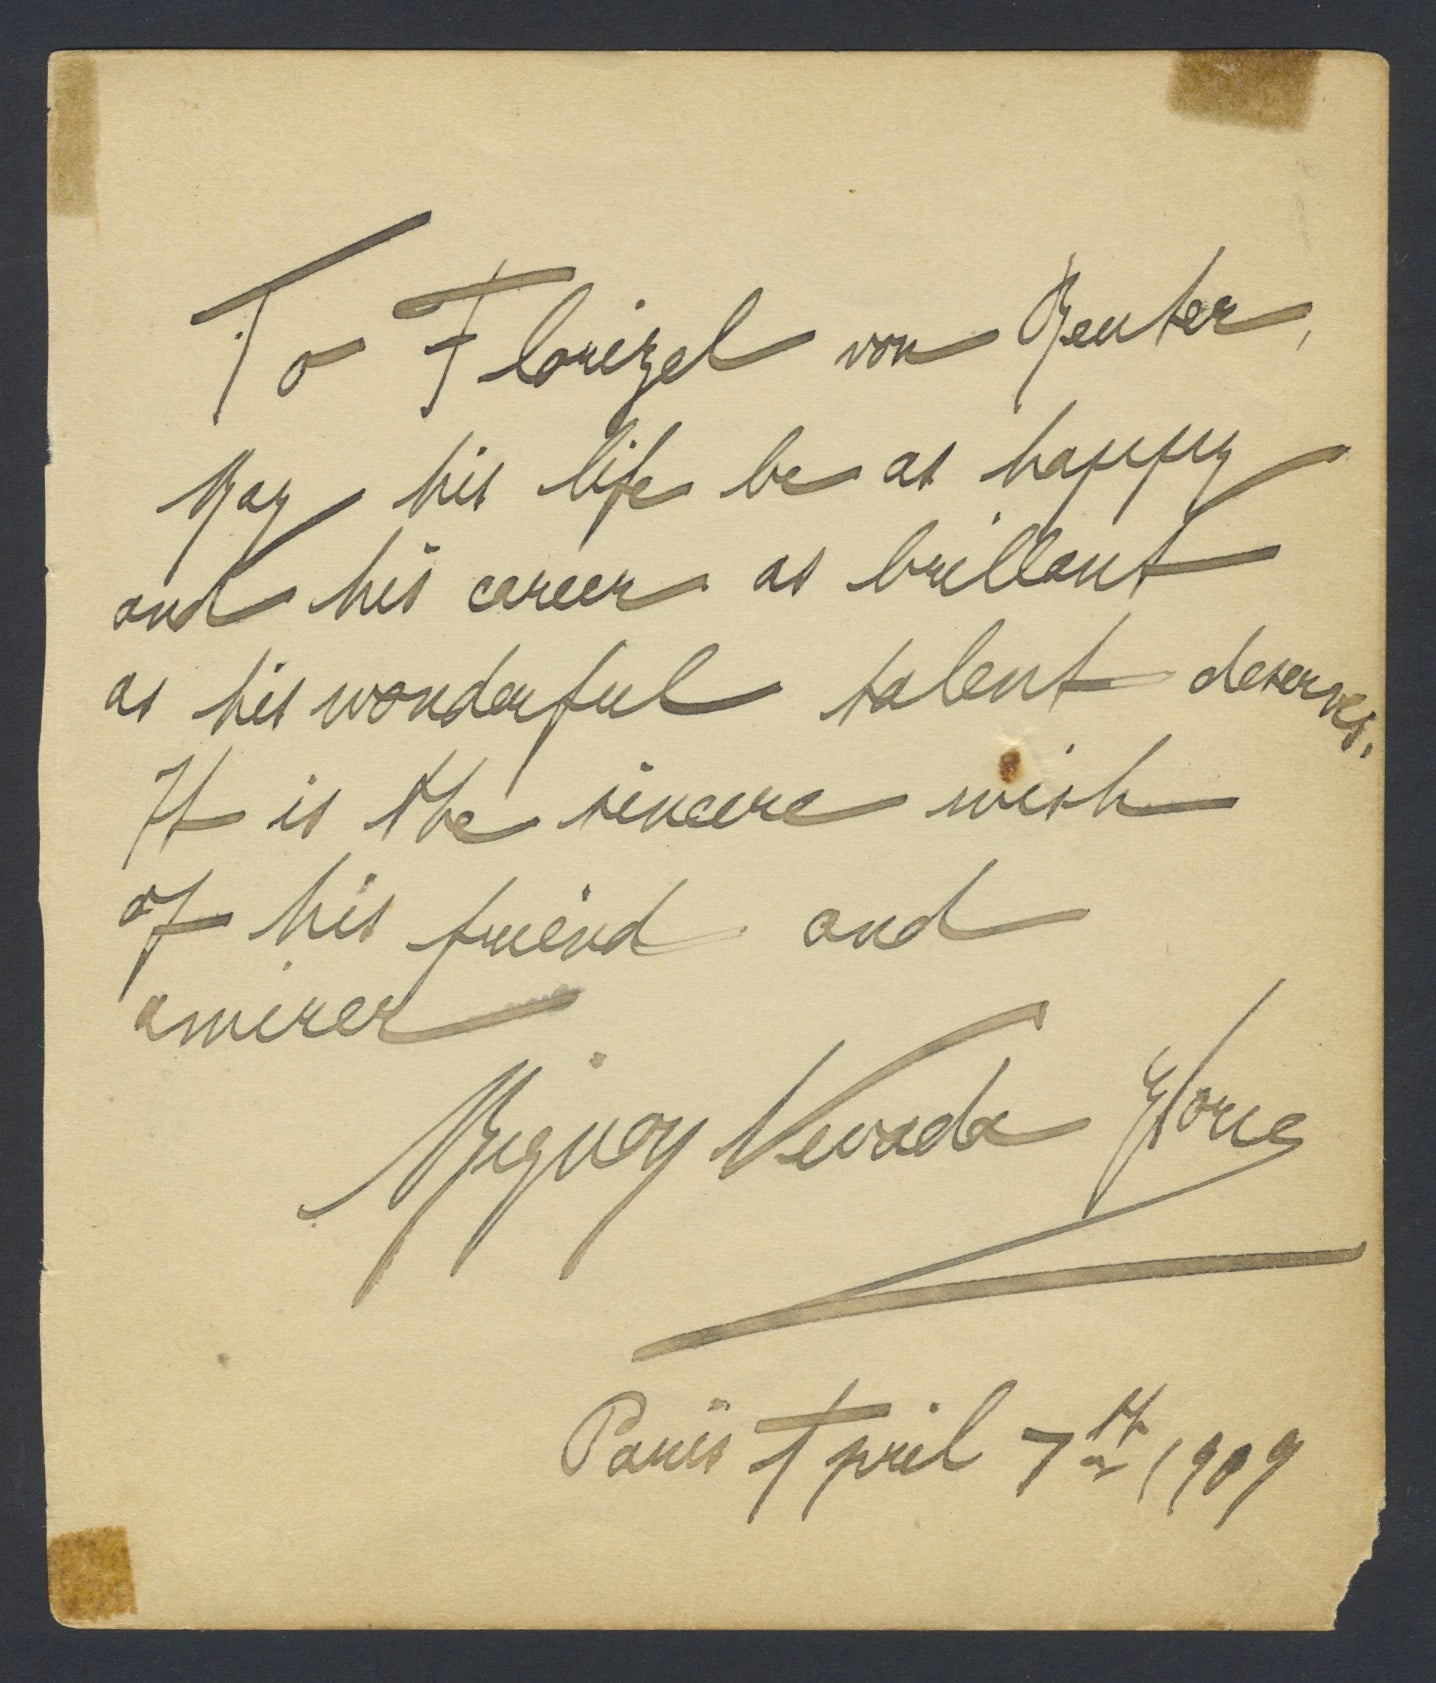 To Florizel von Reuter,
May his life be as happy
and his career as brillant
as his wonderful talent deserves.
It is the sincere wish
of his friend and
amirer
Mignon Nevada
Paris April 7th 1909